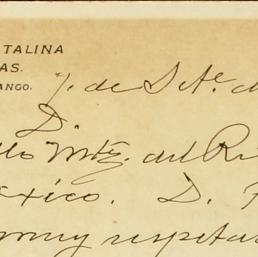 TALINA
AS.
ANGO.
7. de Sete. d
D.
llo Mtz. del R
éxico. D. F
muy respeta